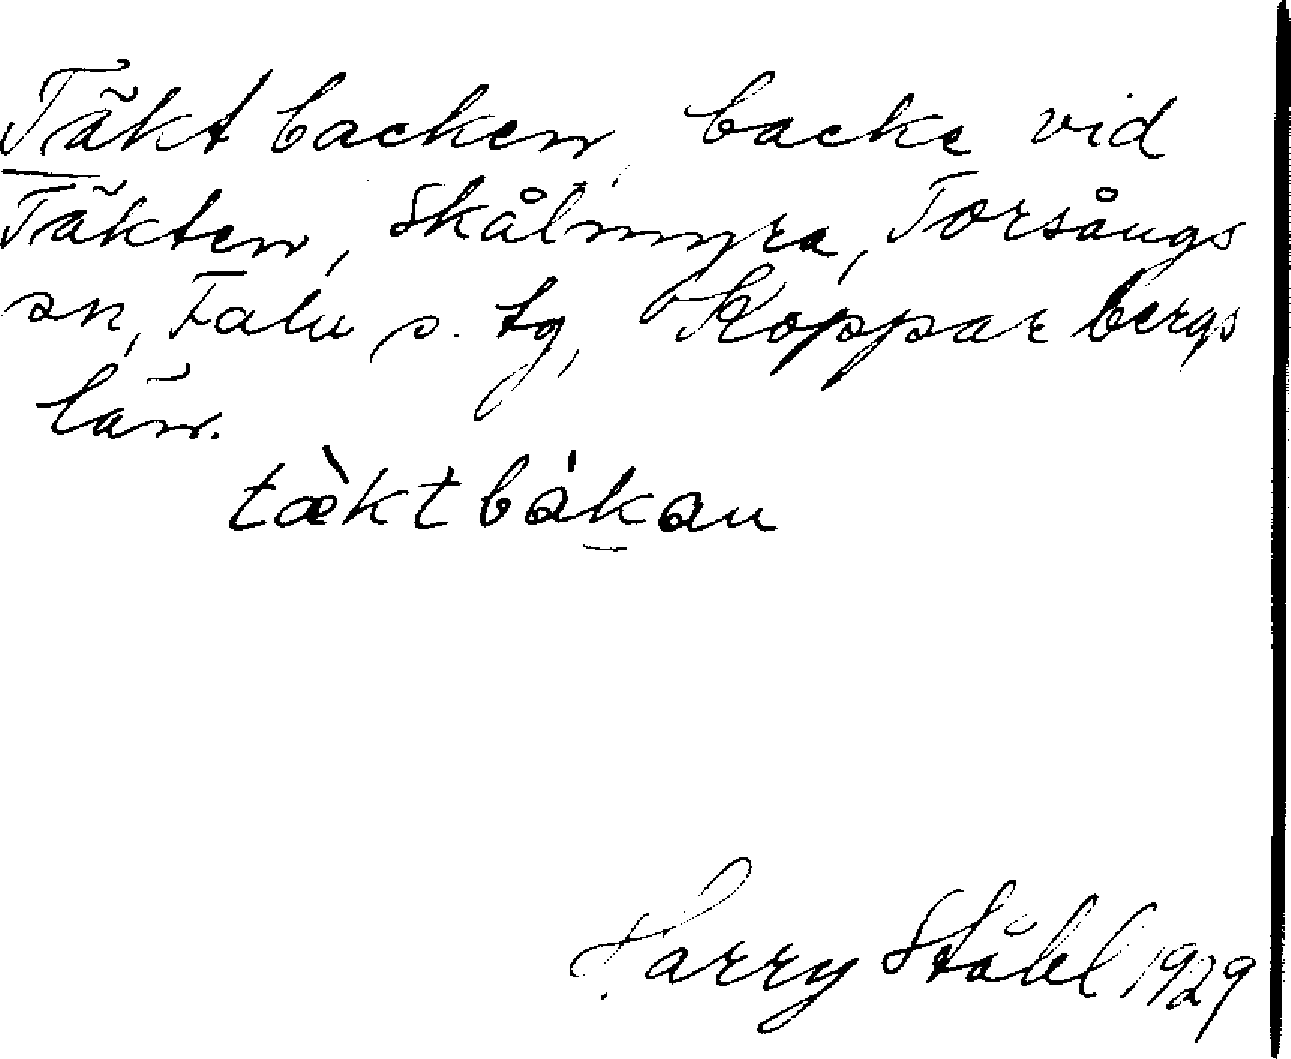 Täktbacken, backe vid
Täkten, Skålmyra, Torsångs
sn, Falu s. tg, Kopparbergs
län.
tæ̀ktbákan
Harry Ståhl 1929